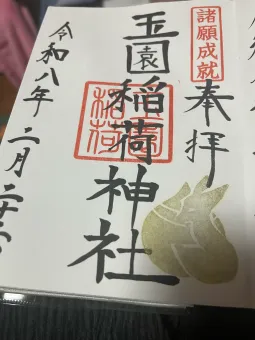 諸願成就
奉拝
玉園稲荷神社
稲荷
令和八年二月二十